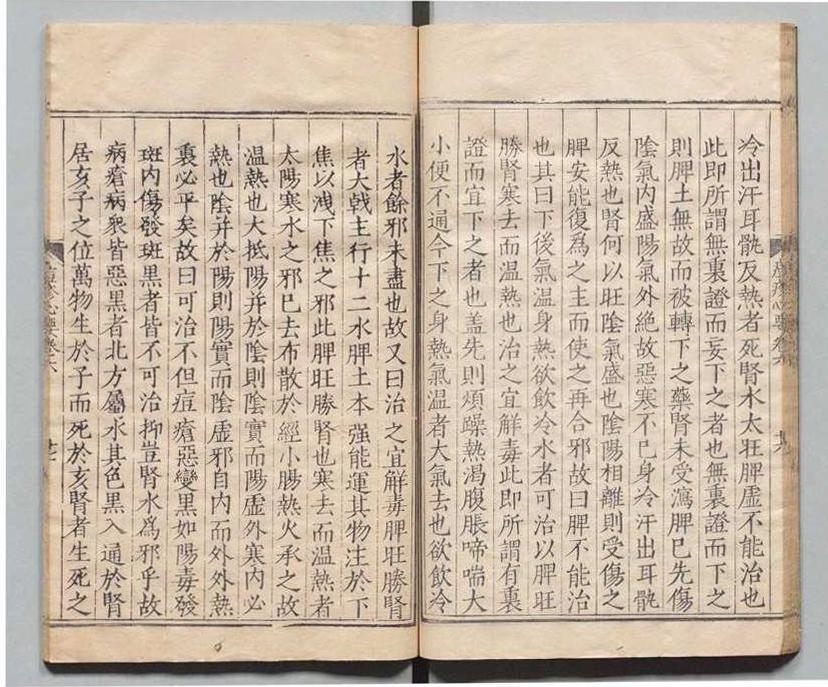 冷出汗耳骫反熱者死腎水太旺脾虛不能治也
此即所謂無裏證而妄下之者也無裏證而下之
則脾土無故而被轉下之藥腎未受瀉脾已先傷
陰氣内盛陽氣外絶故惡寒不已身冷汗出耳骫
反熱也腎何以旺陰氣盛也陰陽相離則受傷之
脾安能復為之主而使之再合邪故曰脾不能治
也其曰下後氣温身熱欲飲冷水者可治以脾旺
勝腎寒去而温熱也治之宜解毒此即所謂有裏
證而宜下之者也盖先則煩躁熱渴腹脹啼喘大
小便不通今下之身熱氣温者大氣去也欲飲冷
痘疹心要卷六
水者餘邪未盡也故又曰治之宜解毒脾旺勝腎
者大戟主行十二水脾土本强能運其物注於下
焦以洩下焦之邪此脾旺勝腎也寒去而温熱者
太陽寒水之邪已去布散於經小腸熱火承之故
温熱也大抵陽并於陰則陰實而陽虛外寒内必
熱也陰并於陽則陽實而陰虛邪自内而外外熱
裏必平矣故曰可治不但痘瘡惡變黒如陽毒發
斑内傷發斑黒者皆不可治抑豈腎水爲邪乎故
病瘡病衆皆惡黒者北方屬水其色黒入通於腎
居亥子之位萬物生於子而死於亥腎者生死之
痘疹心要卷六